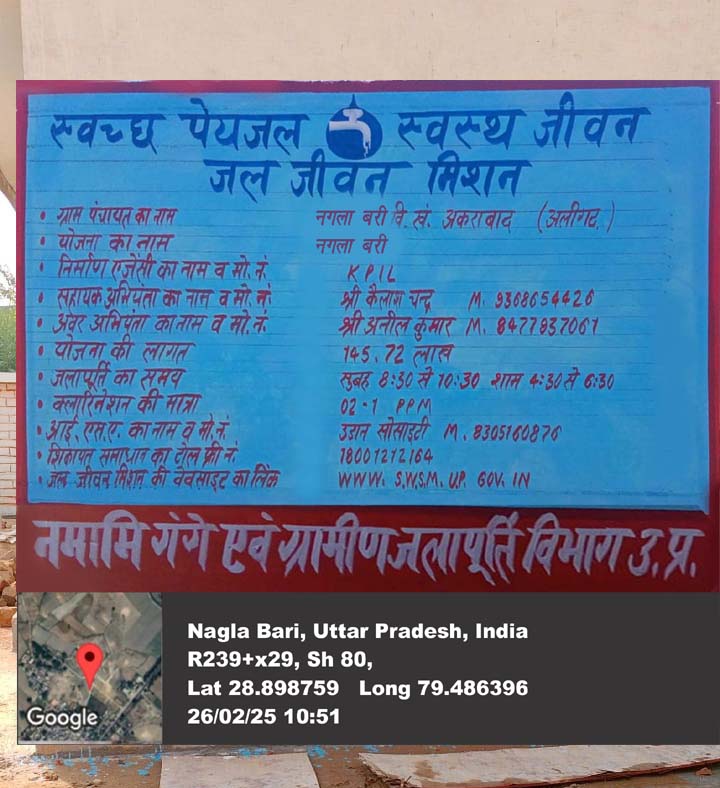 स्वच्छ पेयजल स्वस्थ जीवन
जल जीवन मिशन
• ग्राम पंचायत का नाम नगला बरी वि. खं. अकराबाद (अलीगढ़)
• योजना का नाम नगला बरी
• निर्माण एजेंसी का नाम व मो. नं. KPIL
• सहायक अभियंता का नाम व मो. नं. श्री कैलाश चन्द्र M. 9368654426
• अवर अभियंता का नाम व मो. नं. श्री अनील कुमार M. 8477937061
• योजना की लागत 145.72 लाख
• जलापूर्ति का समय सुबह 8:30 से 10:30 शाम 4:30 से 6:30
• क्लोरिनेशन की मात्रा 02-1 PPM
• आई. एस. ए. का नाम व मो. नं. उडान सोसाइटी M. 8305160876
• शिकायत समाधान का टोल फ्री नं. 18001212164
• जल जीवन मिशन की वेवसाइट का लिंक WWW. S.W.S.M. UP. GOV. IN
नमामि गंगे एवं ग्रामीण जलापूर्ति विभाग उ.प्र.
Nagla Bari, Uttar Pradesh, India
R239+x29, Sh 80,
Lat 28.898759 Long 79.486396
26/02/25 10:51
Google